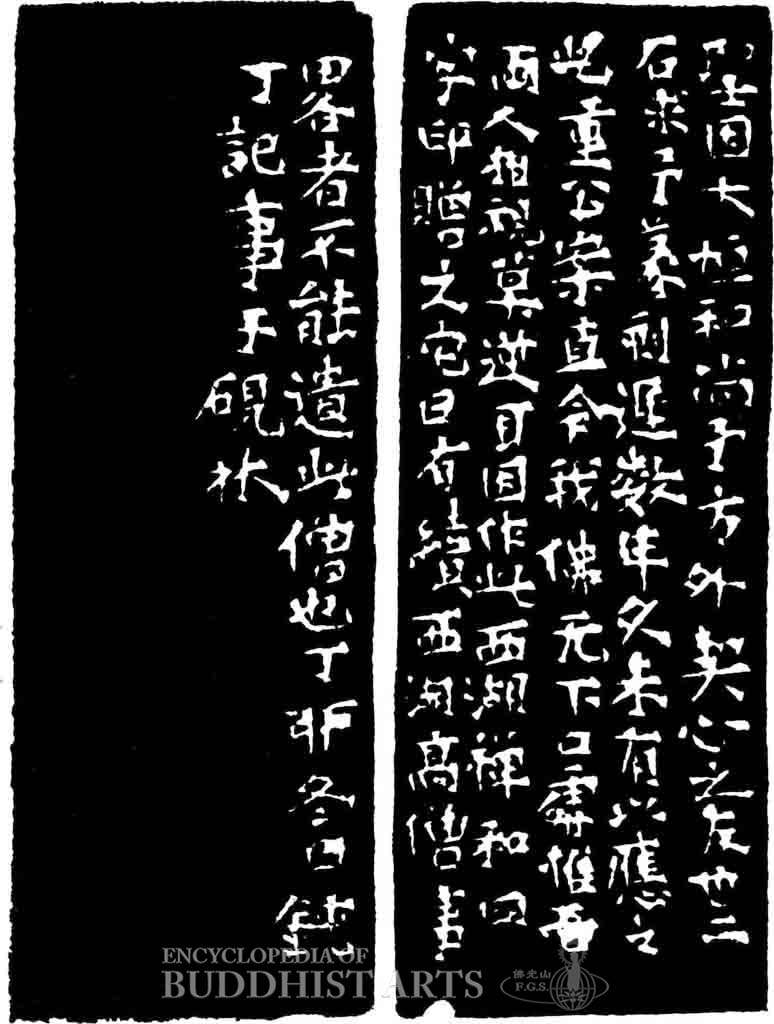 聖因大恒和尚予方外契心之友也二
石求予篆刻遲數年久未有以應之
此重公案直令我佛无下口處惟吾
兩人相視莫逆耳因作此西湖禪和四
字印贈之它日有續西湖高僧事
畧者不能遺此僧也丁卯冬日鈍
丁記事于硯林
ENCYCLOPEDIA OF
BUDDHIST ARTS
佛光山
F.G.S.